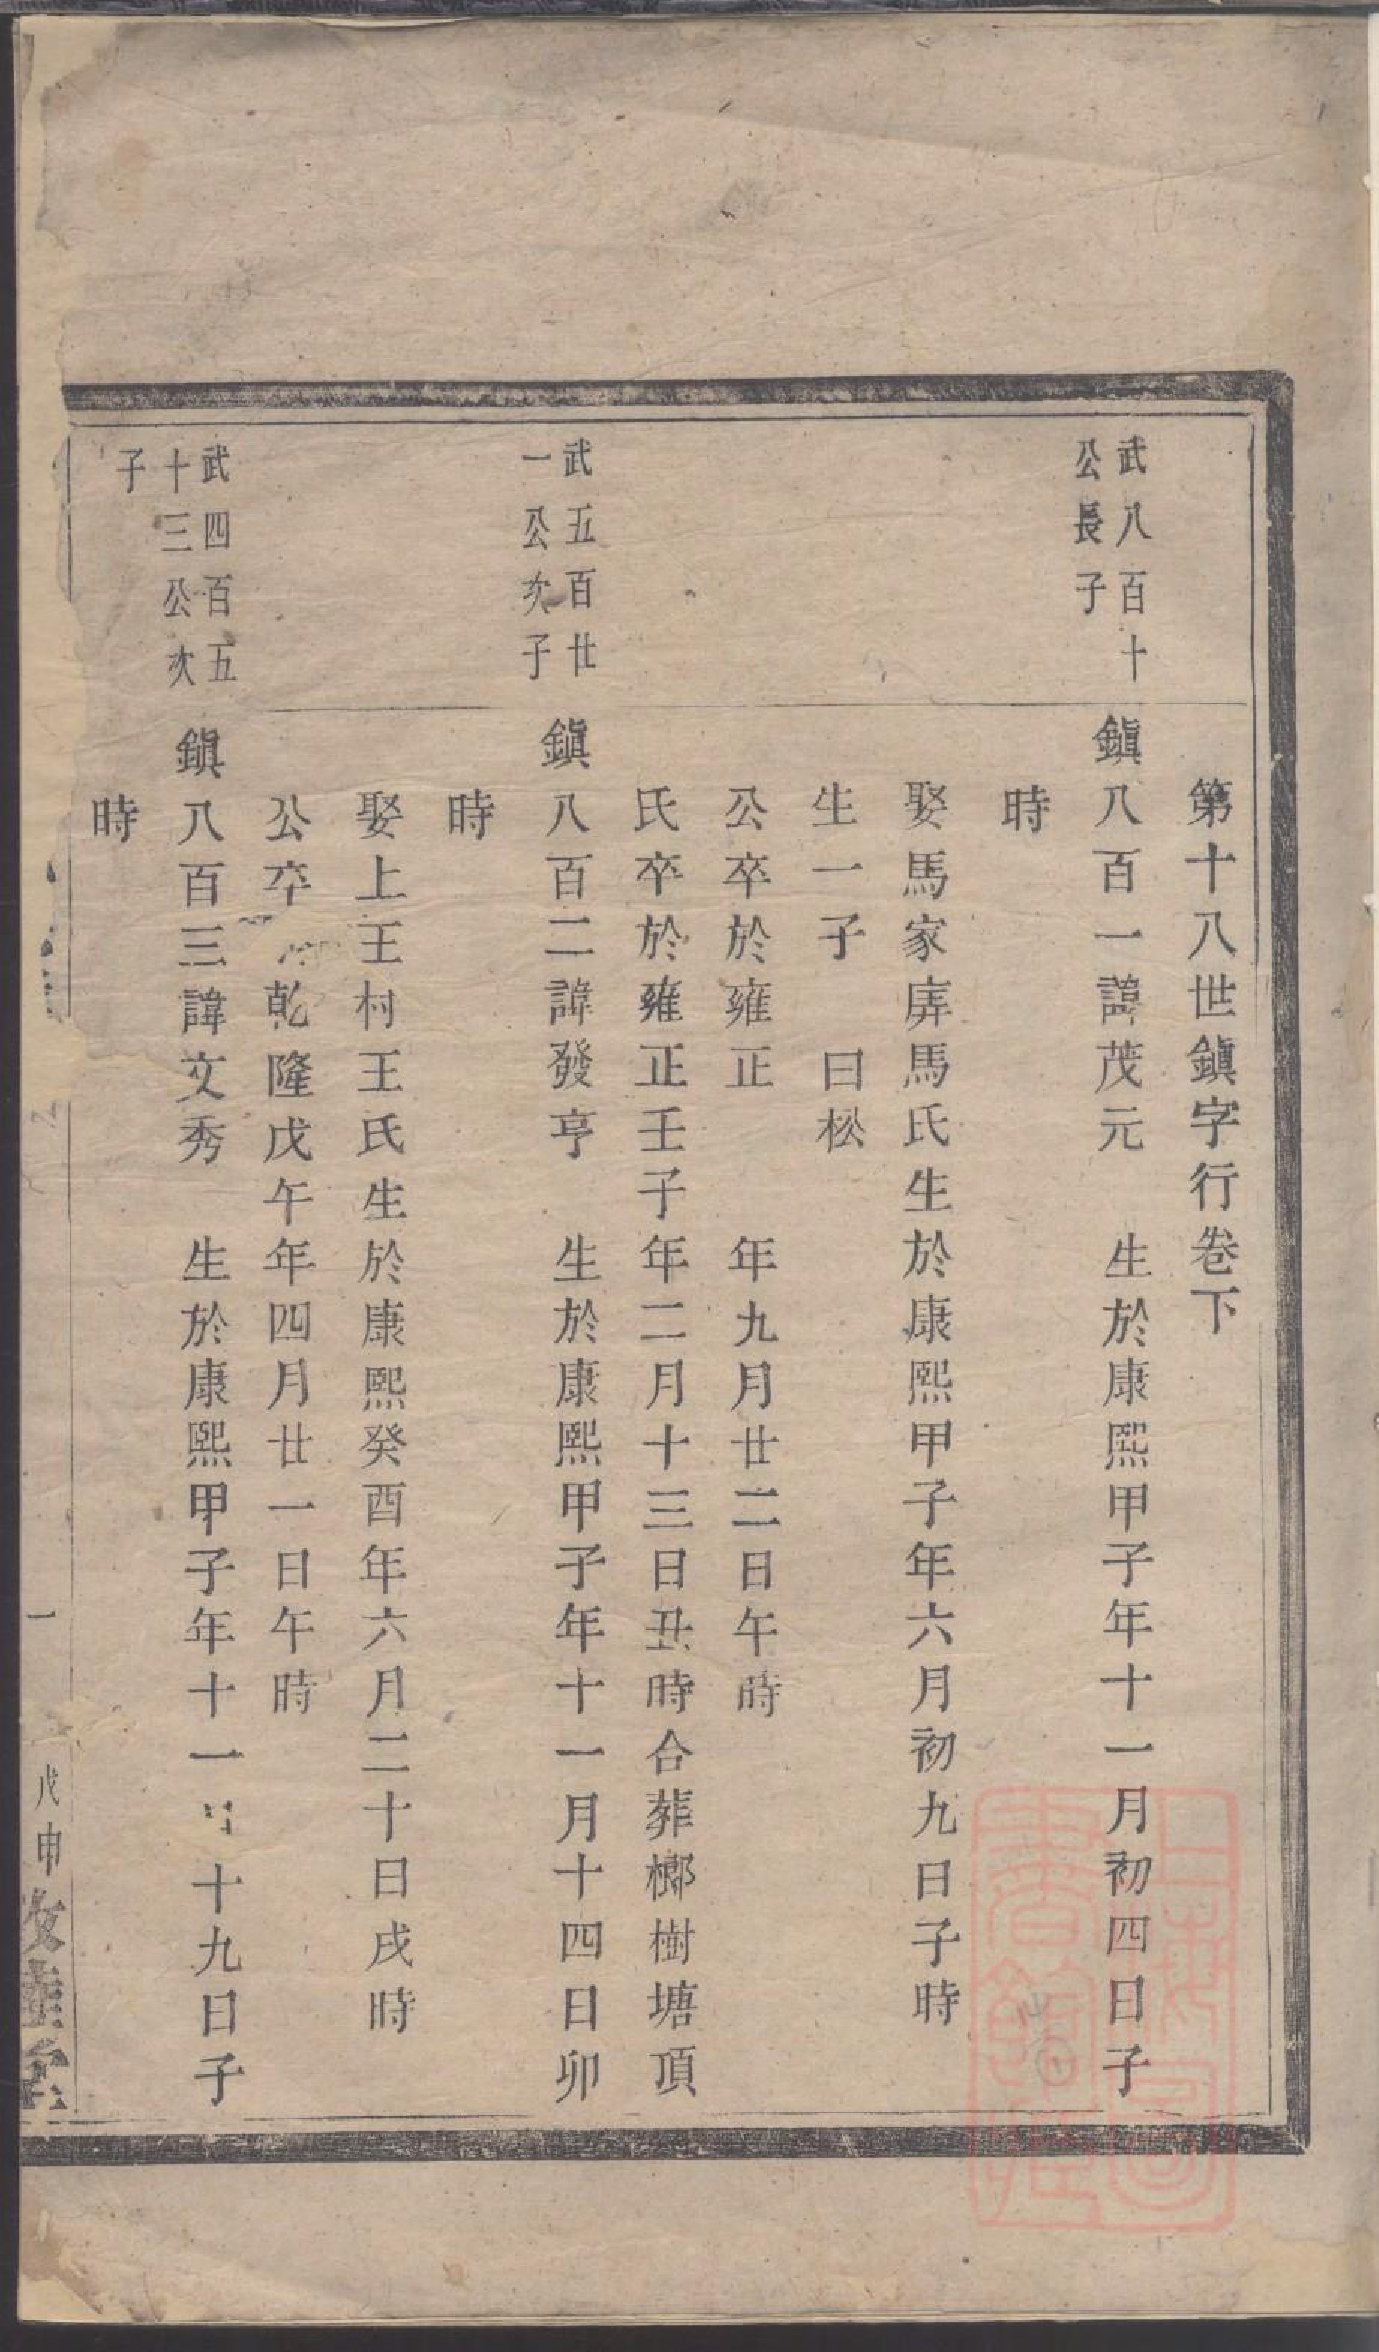 第十八世鎭字行卷下
武八百十
公長子
鎭八百一諱茂元 生於康熙甲子年十一月初四日子
時
娶馬家庰馬氏生於康熙甲子年六月初九日子時
生一子 曰松
公卒於雍正 年九月廿二日午時
氏卒於雍正壬子年二月十三日丑時合葬榔樹塘頂
武五百廿
一公次子
鎭八百二諱發亨 生於康熙甲子年十一月十四日卯
時
娶上王村王氏生於康熙癸酉年六月二十日戌時
公卒 乾隆戊午年四月廿一日午時
武四百五
十三公次
子
鎭八百三諱文秀 生於康熙甲子年十一 十九日子
時
一
戊申
上海圖
書館藏